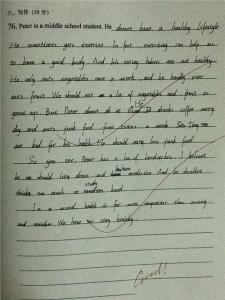 八、写作 (10分)
76. Peter is a middle school student. He doesn't have a healthy lifestyle
He sometimes gets exercise. In fact exercising can help us
to have a good body. And his eating habits are not healthy.
He only eats vegetables once a week and he hardly ever
eats fruit. We should eat a lot of vegetables and fruit to
grow up. But Peter doesn't do it. He drinks coffee every
day and eats junk food five times a week. They are
bad for his health. He should eat less junk food.
So you see, Peter has a lot of headaches. I believe
he should lie down and take medicine. And he shouldn't
drink too much or study hard.
In a word, health is far more important than money
and wisdom. We have to stay healthy.
Good!